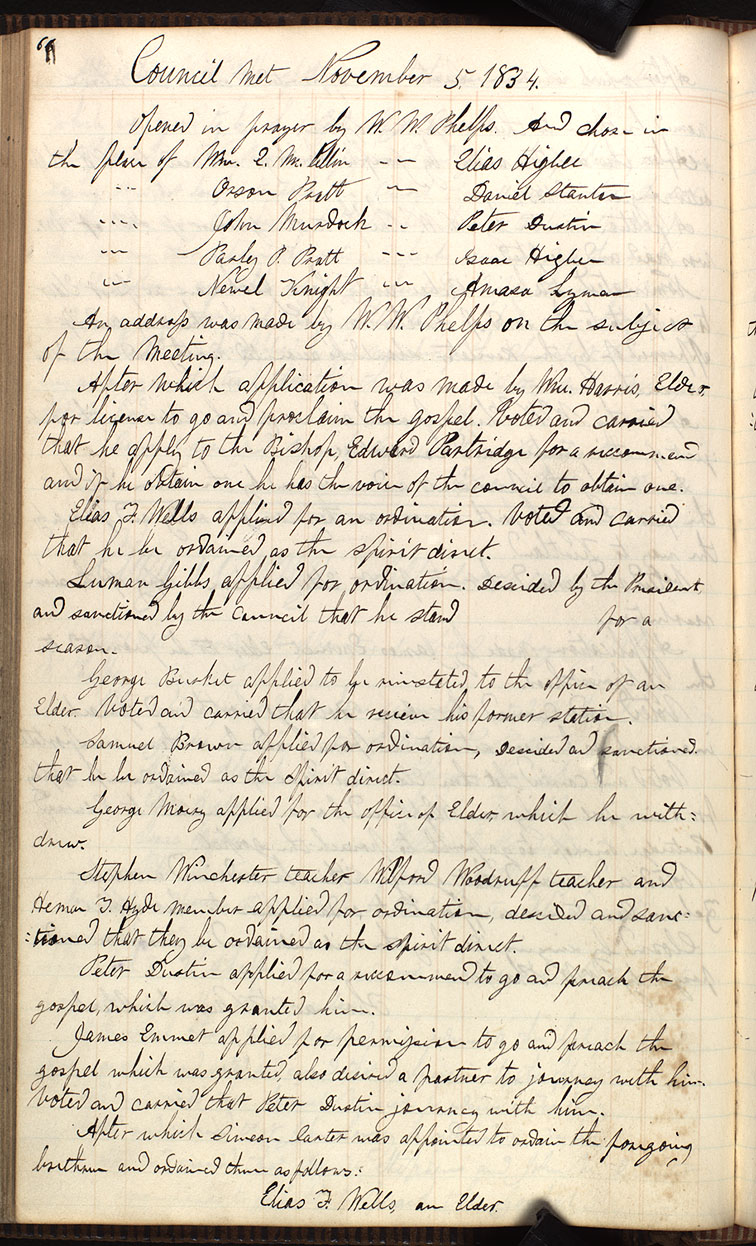 Council met November 5. 1834.
Opened in prayer by W. W. Phelps. And chose in
the place of Wm. E. McLellin -- Elias Higbee
" Orson Pratt -- Daniel Stanton
" John Murdock -- Peter Dustin
" Parley P. Pratt -- Isaac Higbee
" Newel Knight -- Amasa Lyman
An, address was made by W. W. Phelps on the subject
of the meeting.
After which application was made by Wm. Harris, Elder,
for license to go and proclaim the gospel. Voted and carried
that he apply to the Bishop, Edward Partridge for a recommend
and if he obtain one he has the voice of the council to obtain one.
Elias F. Wells applied for an ordination. Voted and carried
that he be ordained as the spirit direct.
Luman Gibbs, applied for ordination. Descided by the President,
and sanctioned by the council that he stand for a
season.
George Burket applied to be reinstated to the office of an
Elder. Voted and carried that he recieve his former station.
Samuel Brown applied for ordination, descided and sanctioned
that he be ordained as the spirit direct.
George Morey applied for the office of Elder, which he with=
drew.
Stephen Winchester teacher Wilford Woodruff teacher and
Heman T. Hyde member applied for ordination, descided and sanc=
=tioned that they be ordained as the spirit direct.
Peter Dustin applied for a recommend to go and preach the
gospel, which was granted him.
James Emmet applied for permission to go and preach the
gospel which was granted, also desired a partner to journey with him.
Voted and carried that Peter Dustin journey with him.
After which Simeon Carter was appointed to ordain the foregoing
brethren and ordained them as follows:
Elias F. Wells, an Elder.